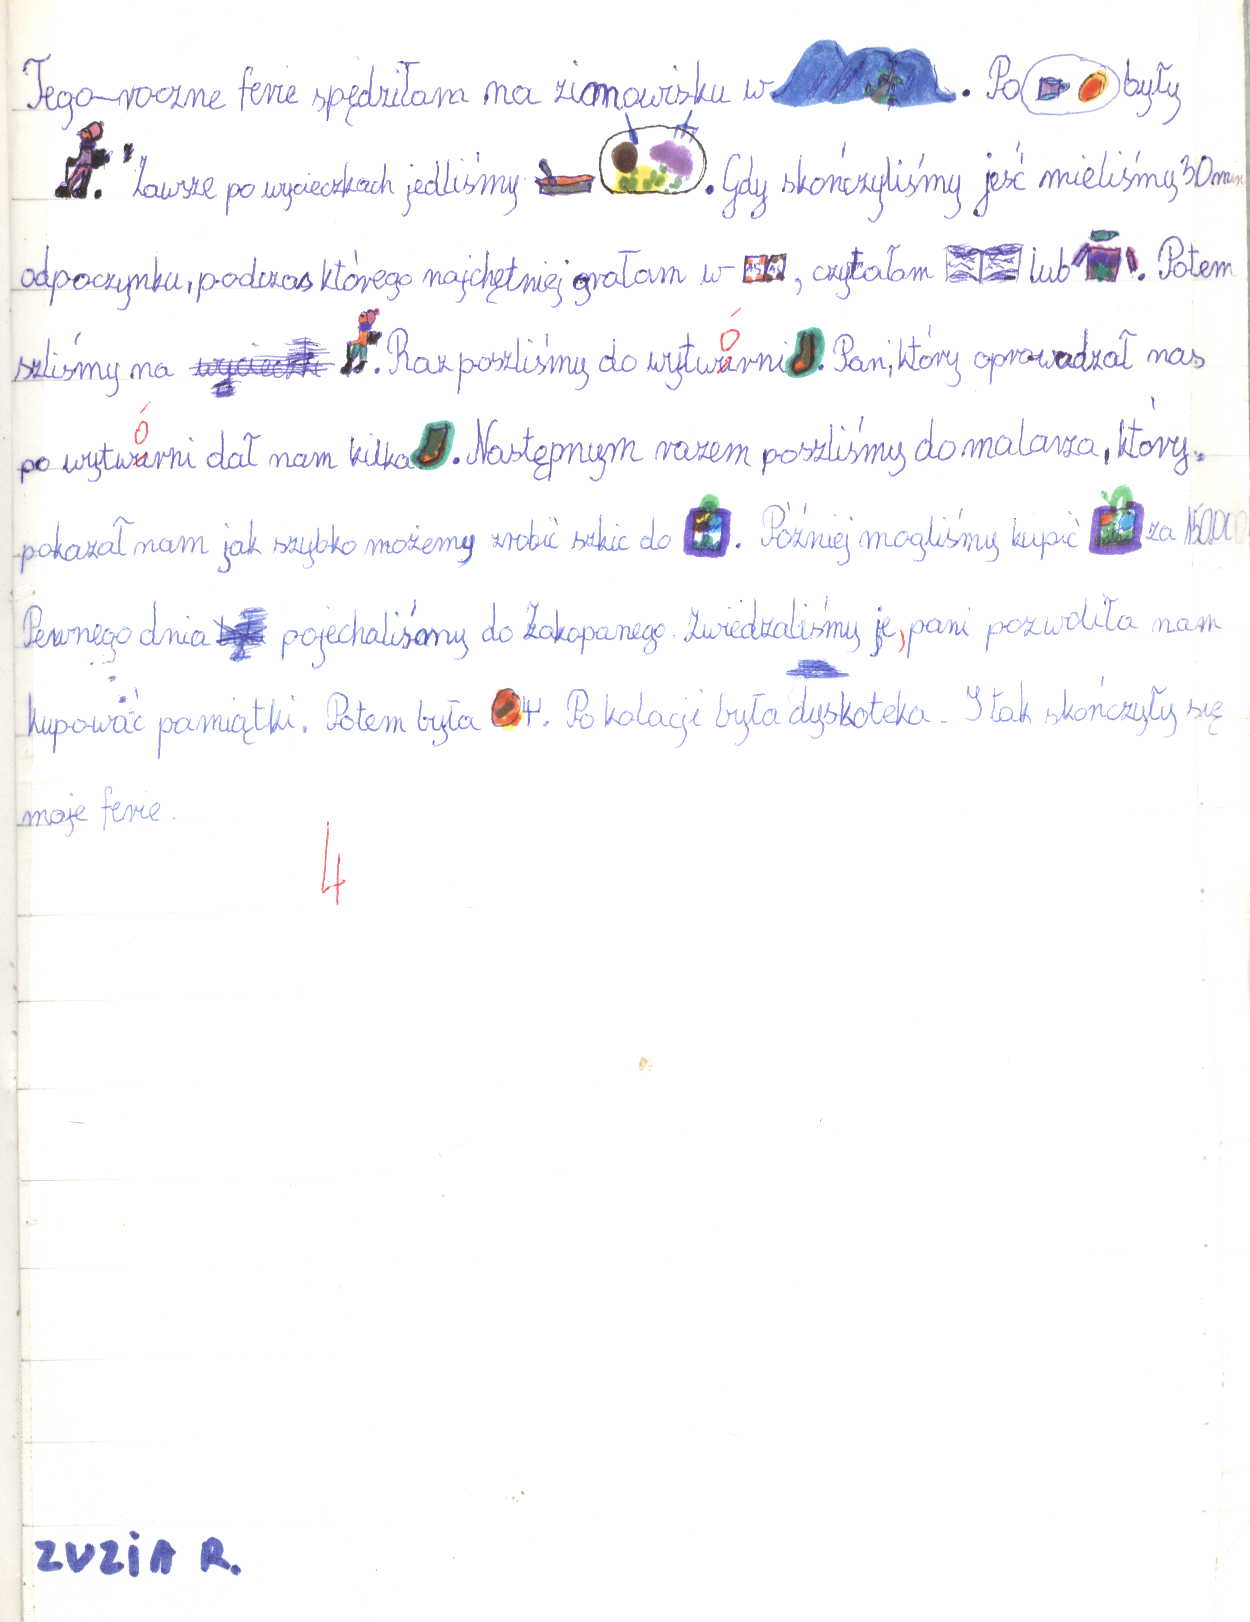 Tego-roczne ferie spędziłam na zimowisku w . Po były
. Zawsze po wycieczkach jedliśmy . Gdy skończyliśmy jeść mieliśmy 30 min
odpoczynku, podczas którego najchętniej grałam w , czytałam lub . Potem
szliśmy na . Raz poszliśmy do wytwórni . Pan, który oprowadzał nas
po wytwórni dał nam kilka . Następnym razem poszliśmy do malarza, który
pokazał nam jak szybko możemy zrobić szkic do . Później mogliśmy kupić za 150.000
Pewnego dnia pojechaliśmy do Zakopanego. Zwiedzaliśmy je, pani pozwoliła nam
kupować pamiątki. Potem była . Po kolacji była dyskoteka. I tak skończyły się
moje ferie.
4
ZUZIA R.